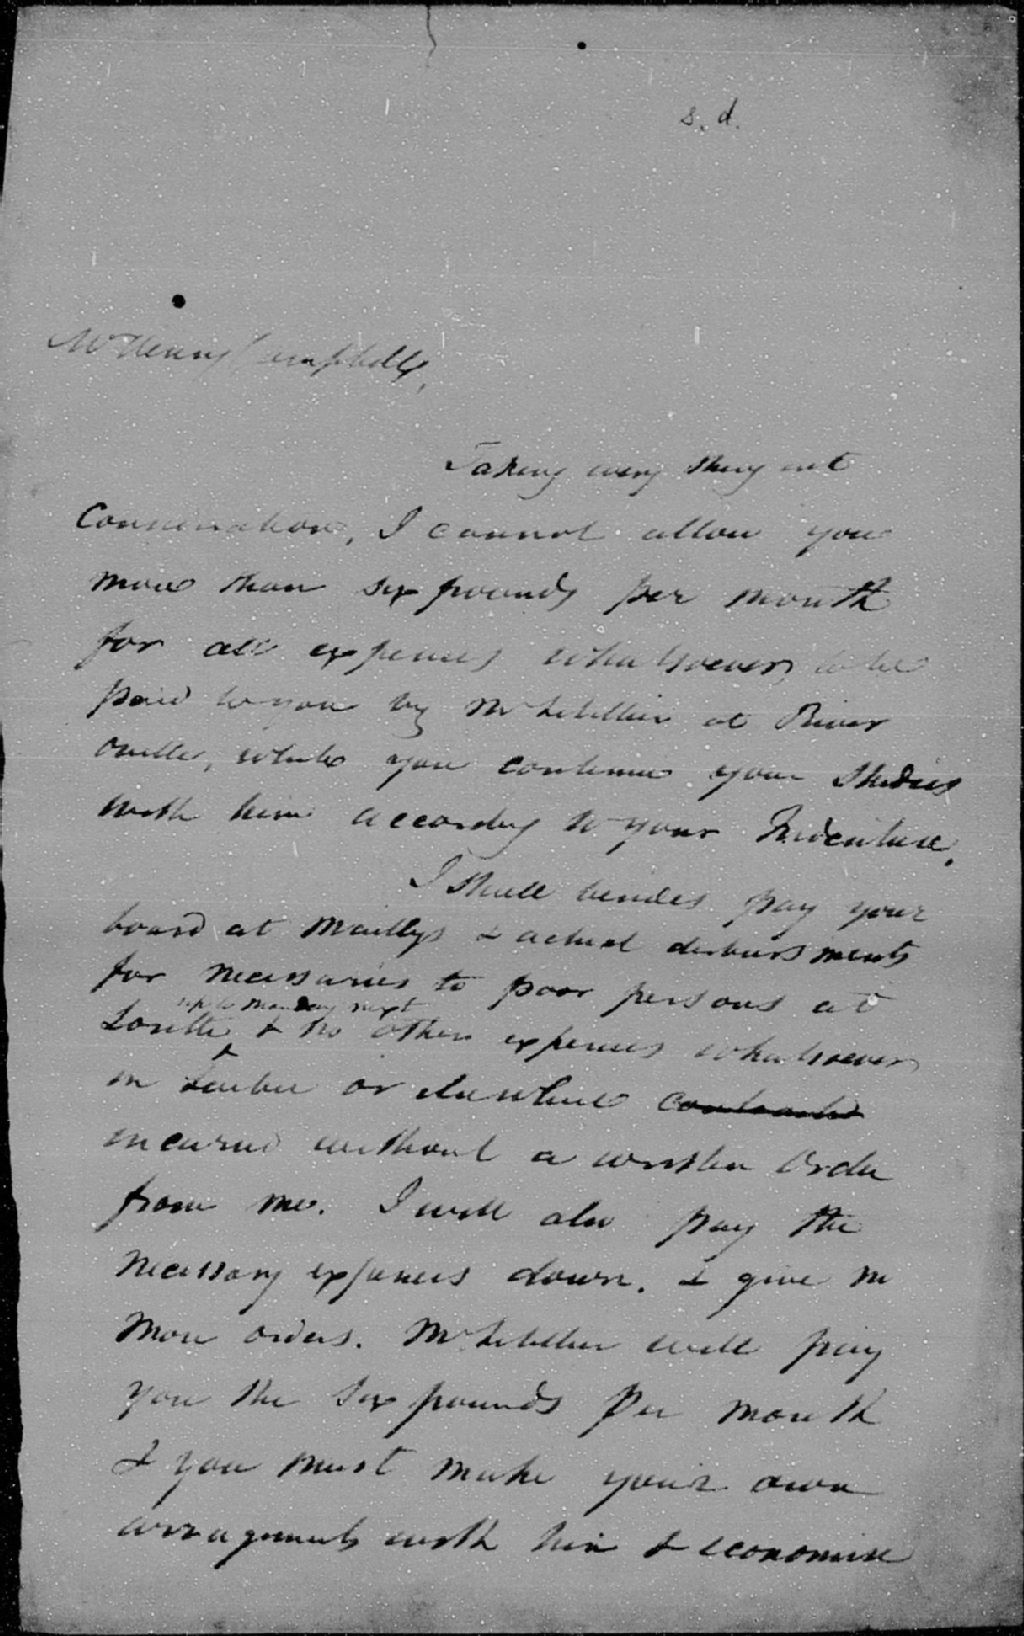 s. d.
Mr Henry Campbell,
Taking every thing into
Consideration, I cannot allow you
more than six pounds per month
for all expenses whatsoever, to be
paid to you by Mr Letellier at River
ouelle, while you continue your Studies
with him according to your Indenture.
I shall besides pay your
board at Maillys & actual disbursments
for necessaries to poor persons at
up to Monday next
Lorette & no other expenses whatsoever
in Quebec or elsewhere
incurred without a written Order
from me. I will also pay the
necessary expenses down. & give no
more orders. Mr Letellier will pay
you the six pounds Per month
& you must make your own
arrangements with him & economise